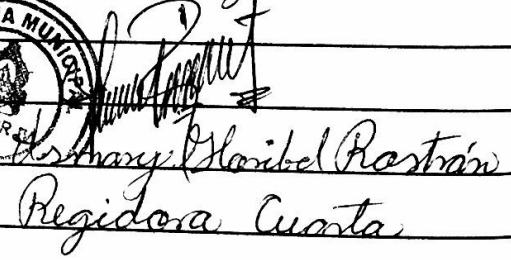 A MUNICIPAL
Osmary Gloribel Rostrán
Regidora Cuarta